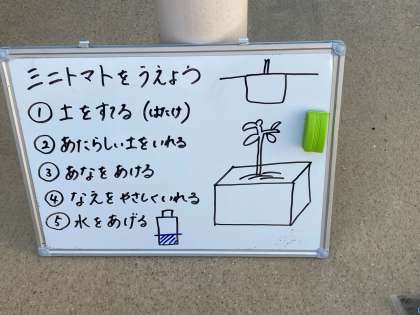 ミニトマトをうえよう
① 土をすてる (はたけ)
② あたらしい土をいれる
③ あなをあける
④ なえをやさしくいれる
⑤ 水をあげる